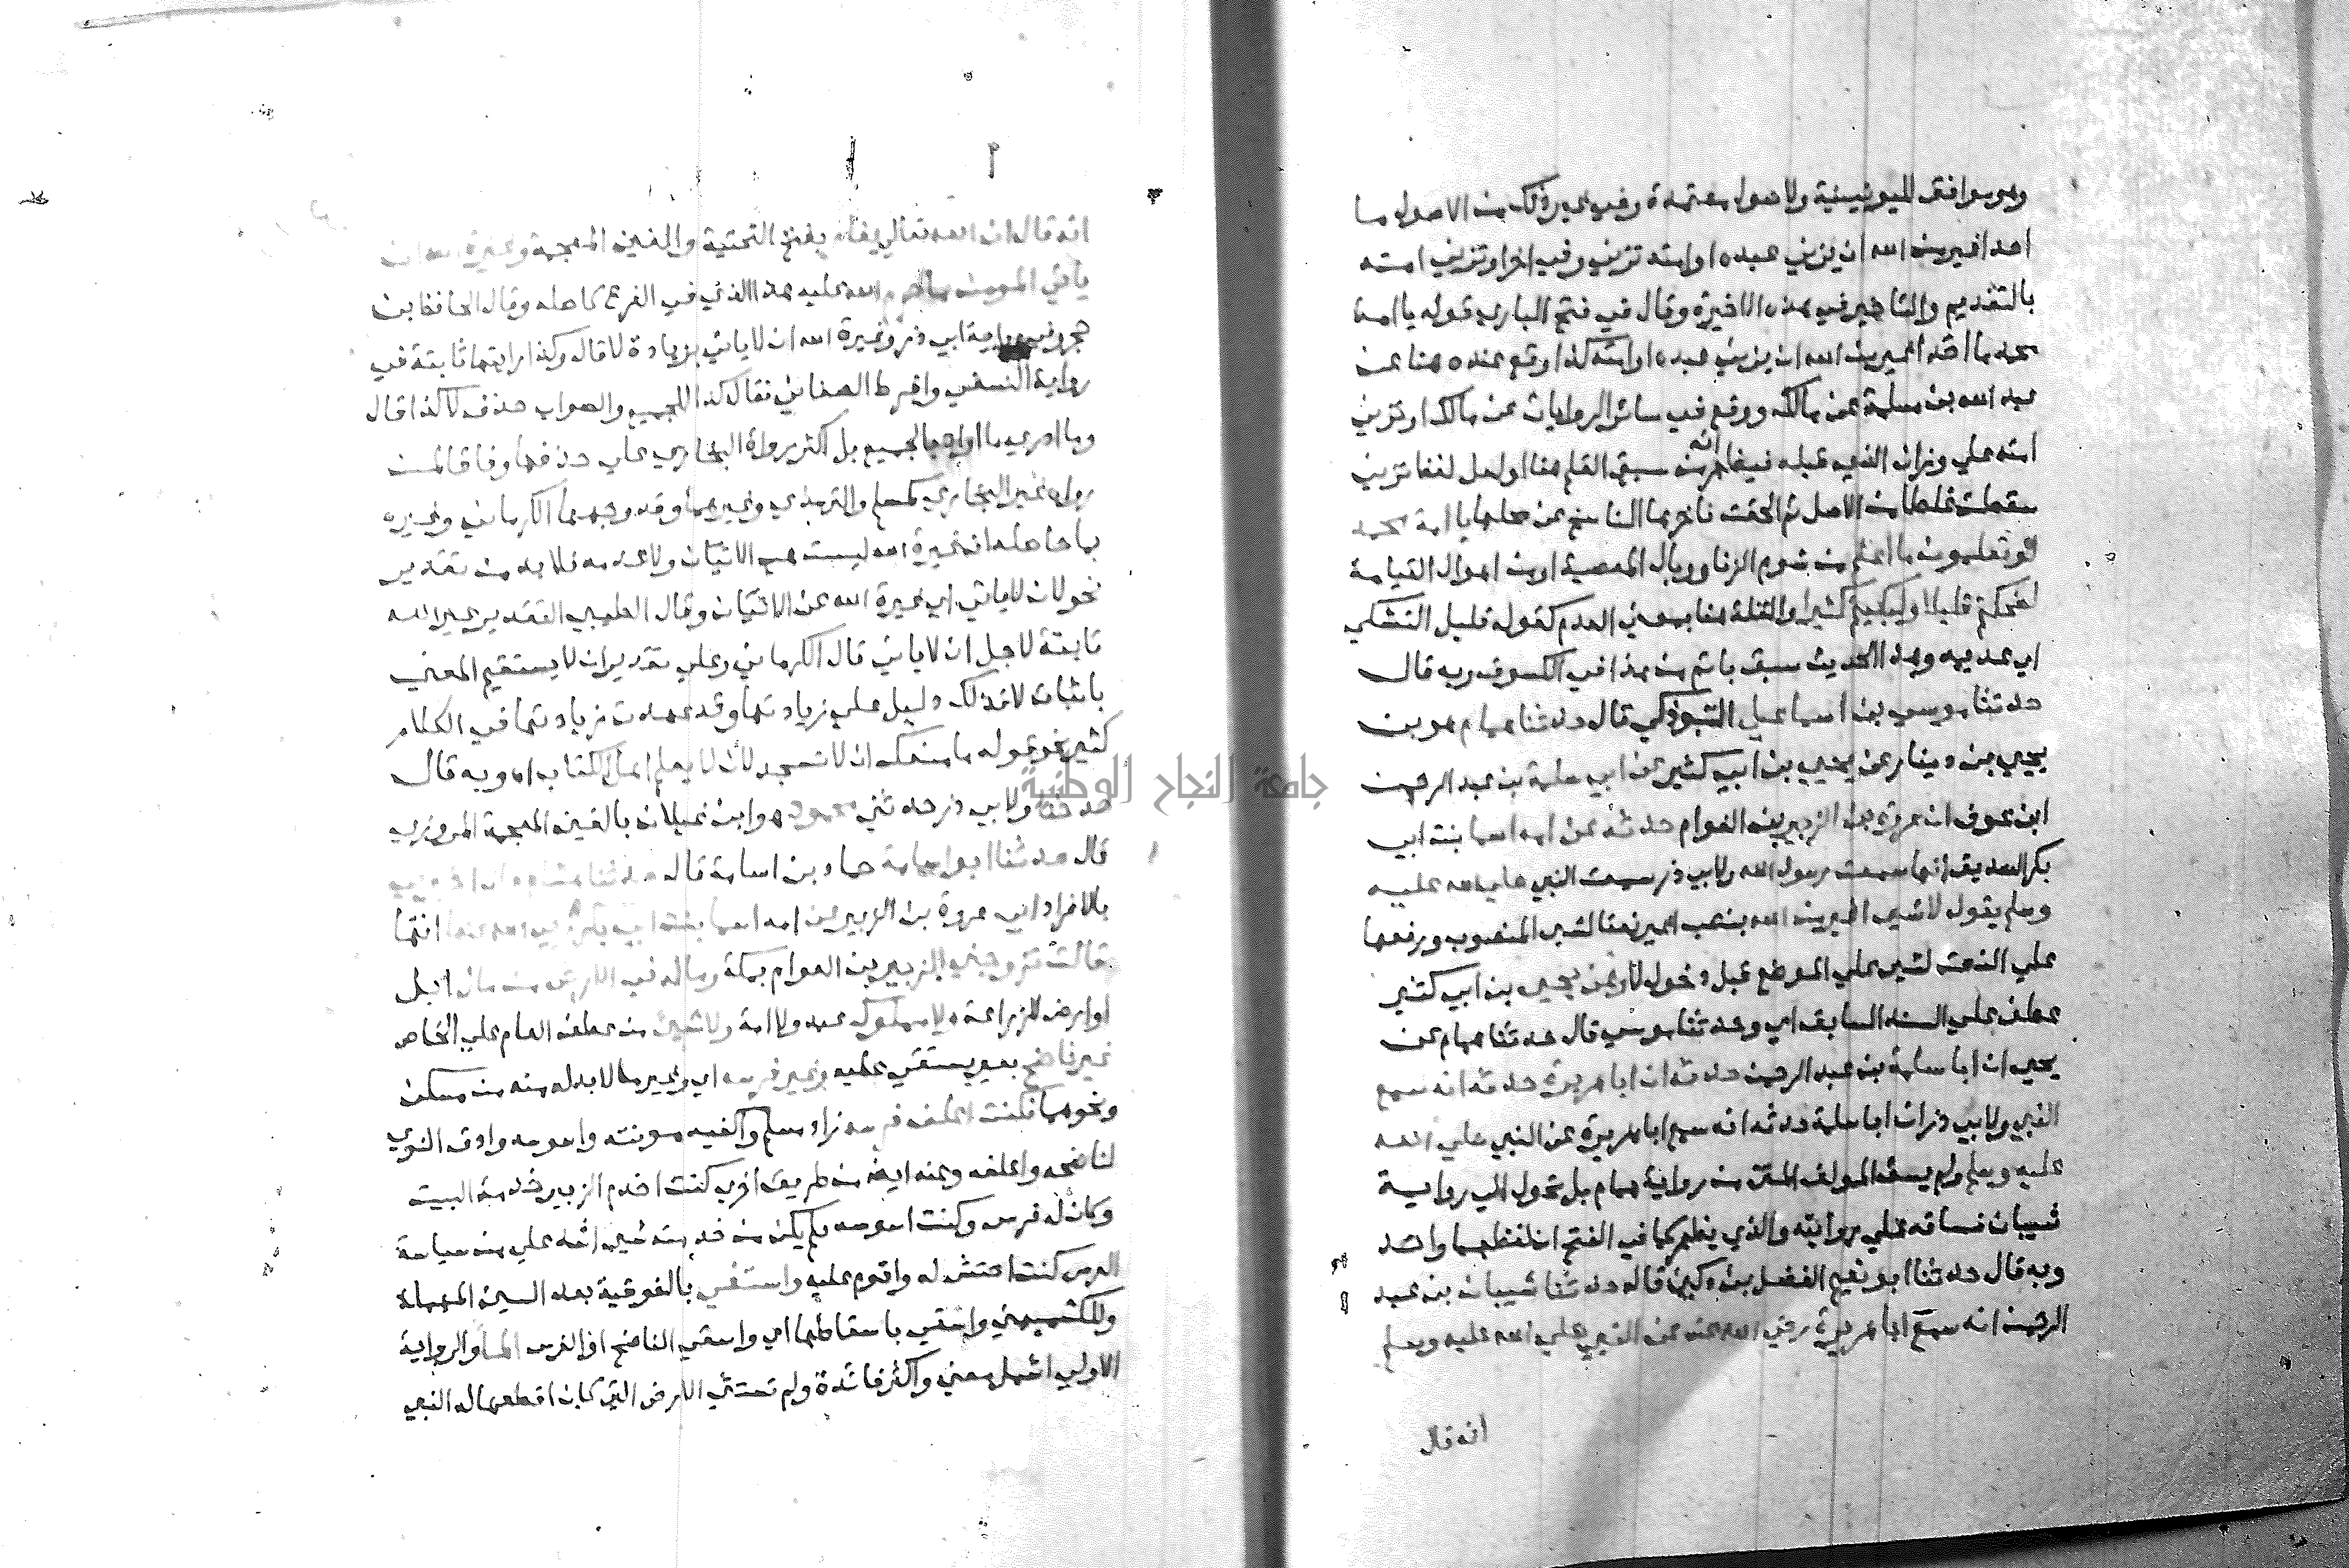 وهو موافق لليونينية ولاصول معتمدة وفي غير ذلك من الاصول ما
احد اغير من الله ان يزني عبده او امته تزني وفي اخر او تزني امته
بالتقديم والتاخير في هذه الاخيرة وقال في فتح الباري قوله يا امة
محمد ما احد اغير من الله ان يزني عبده او امته كذا وقع عنده هنا عن
عبد الله بن مسلمة عن مالك ووقع في سائر الروايات عن مالك او تزني
امته علي وزان الذي قبله فيظهر انه من سبق القلم هنا او لعل لفظ تزني
سقطت غلطا من الاصل ثم الحقت فاخرها الناسخ عن محلها يا امة محمد
لو تعلمون ما اعلم من شوم الزنا ووبال المعصية او من اهوال القيامة
لضحكتم قليلا ولبكيتم كثيرا والقلة هنا بمعني العدم كقوله قليل التشكي
اي عديمه وهذا الحديث سبق باتم من هذا في الكسوف وبه قال
حدثنا موسي بن اسماعيل التبوذكي قال حدثنا همام هو بن
يحيي بن دينار عن يحيي بن ابي كثير عن ابي سلمة بن عبد الرحمن
ابن عوف ان عروة بن الزبير بن العوام حدثه عن امه اسما بنت ابي
بكر الصديق انها سمعت رسول الله ولابي ذر سمعت النبي صلي الله عليه
وسلم يقول لا شي اغير من الله بنصب اغير نعتا لشي المنصوب ورفعها
علي النعت لشي علي الموضع قبل دخول لا وعن يحيي بن ابي كثير
عطف علي السند السابق اي وحدثنا موسي قال حدثنا همام عن
يحيي ان ابا سلمة بن عبد الرحمن حدثه ان ابا هريرة حدثه انه سمع
النبي ولابي ذر ان ابا سلمة حدثه انه سمع ابا هريرة عن النبي صلي الله
عليه وسلم ولم يسق المولف المتن من رواية همام بل تحول الي رواية
شيبان فساقه علي روايته والذي يظهر كما في الفتح ان لفظهما واحد
وبه قال حدثنا ابو نعيم الفضل بن دكين قال حدثنا شيبان بن عبد
الرحمن انه سمع ابا هريرة رضي الله عنه عن النبي صلي الله عليه وسلم
انه قال
انه قال ان الله تعالي يغار بفتح التحتية والغين المعجمة وغيرة الله ان
ياتي المومن ما حرم الله عليه هذا الذي في الفرع كاصله وقال الحافظ بن
حجر وفي رواية ابي ذر وغيرة الله ان لا ياتي بزيادة لا قال وكذا رايتها ثابتة في
رواية النسفي وافرط الصغاني فقال كذا للجميع والصواب حذف لا كذا قال
وما ادري ما اراد بالجميع بل اكثر رواة البخاري علي حذفها وفاقا لمن
رواه غير البخاري كمسلم والترمذي وغيرهما وقد وجهها الكرماني وغيره
بما حاصله ان غيرة الله ليست هي الاتيان ولا عدمه فلا بد من تقدير
نحو لان لا ياتي اي غيرة الله عن الاتيان وقال الطيبي التقدير غيرة الله
ثابتة لاجل ان لا ياتي قال الكرماني وعلي تقدير ان لا يستقيم المعني
باثبات لا فذلك دليل علي زيادتها وقد عهدت زيادتها في الكلام
كثير نحو قوله ما منعك ان لا تسجد لان لا يعلم اهل الكتاب اه وبه قال
حدثنا ولابي ذر حدثني محمود هو ابن غيلان بالغين المعجمة المروزي
قال حدثنا ابو اسامة حماد بن اسامة قال حدثنا هشام
بالافراد ابي عروة بن الزبير عن امه اسما بنت ابي بكر رضي الله عنها انها
قالت تزوجني الزبير بن العوام بمكة وماله في الارض من مال ابل
او ارض للزراعة ولا مملوك عبد ولا امة ولا شي من عطف العام علي الخاص
غير ناضح بعير يستقي عليه وغير فرسه اي وغير ما لا بد له منه من مسكن
ونحوها فكنت اعلف فرسه زاد مسلم واكفيه مونته واسوسه وادق النوي
لناضحه واعلفه وعنه ايضا من طريق اخري كنت اخدم الزبير خدمة البيت
وكان له فرس وكنت اسوسه فلم يكن من خدمته شي اشد علي من سياسة
الفرس كنت احتش له واقوم عليه واستقي بالفوقية بعد السين المهملة
وللكشميهني واسقي باسقاطها اي واسقي الناضح او الفرس الما والرواية
الاولي اشمل معني واكثر فائدة ولم تستثن الارض التي كان اقطعها له النبي
جامعة النجاح الوطنية